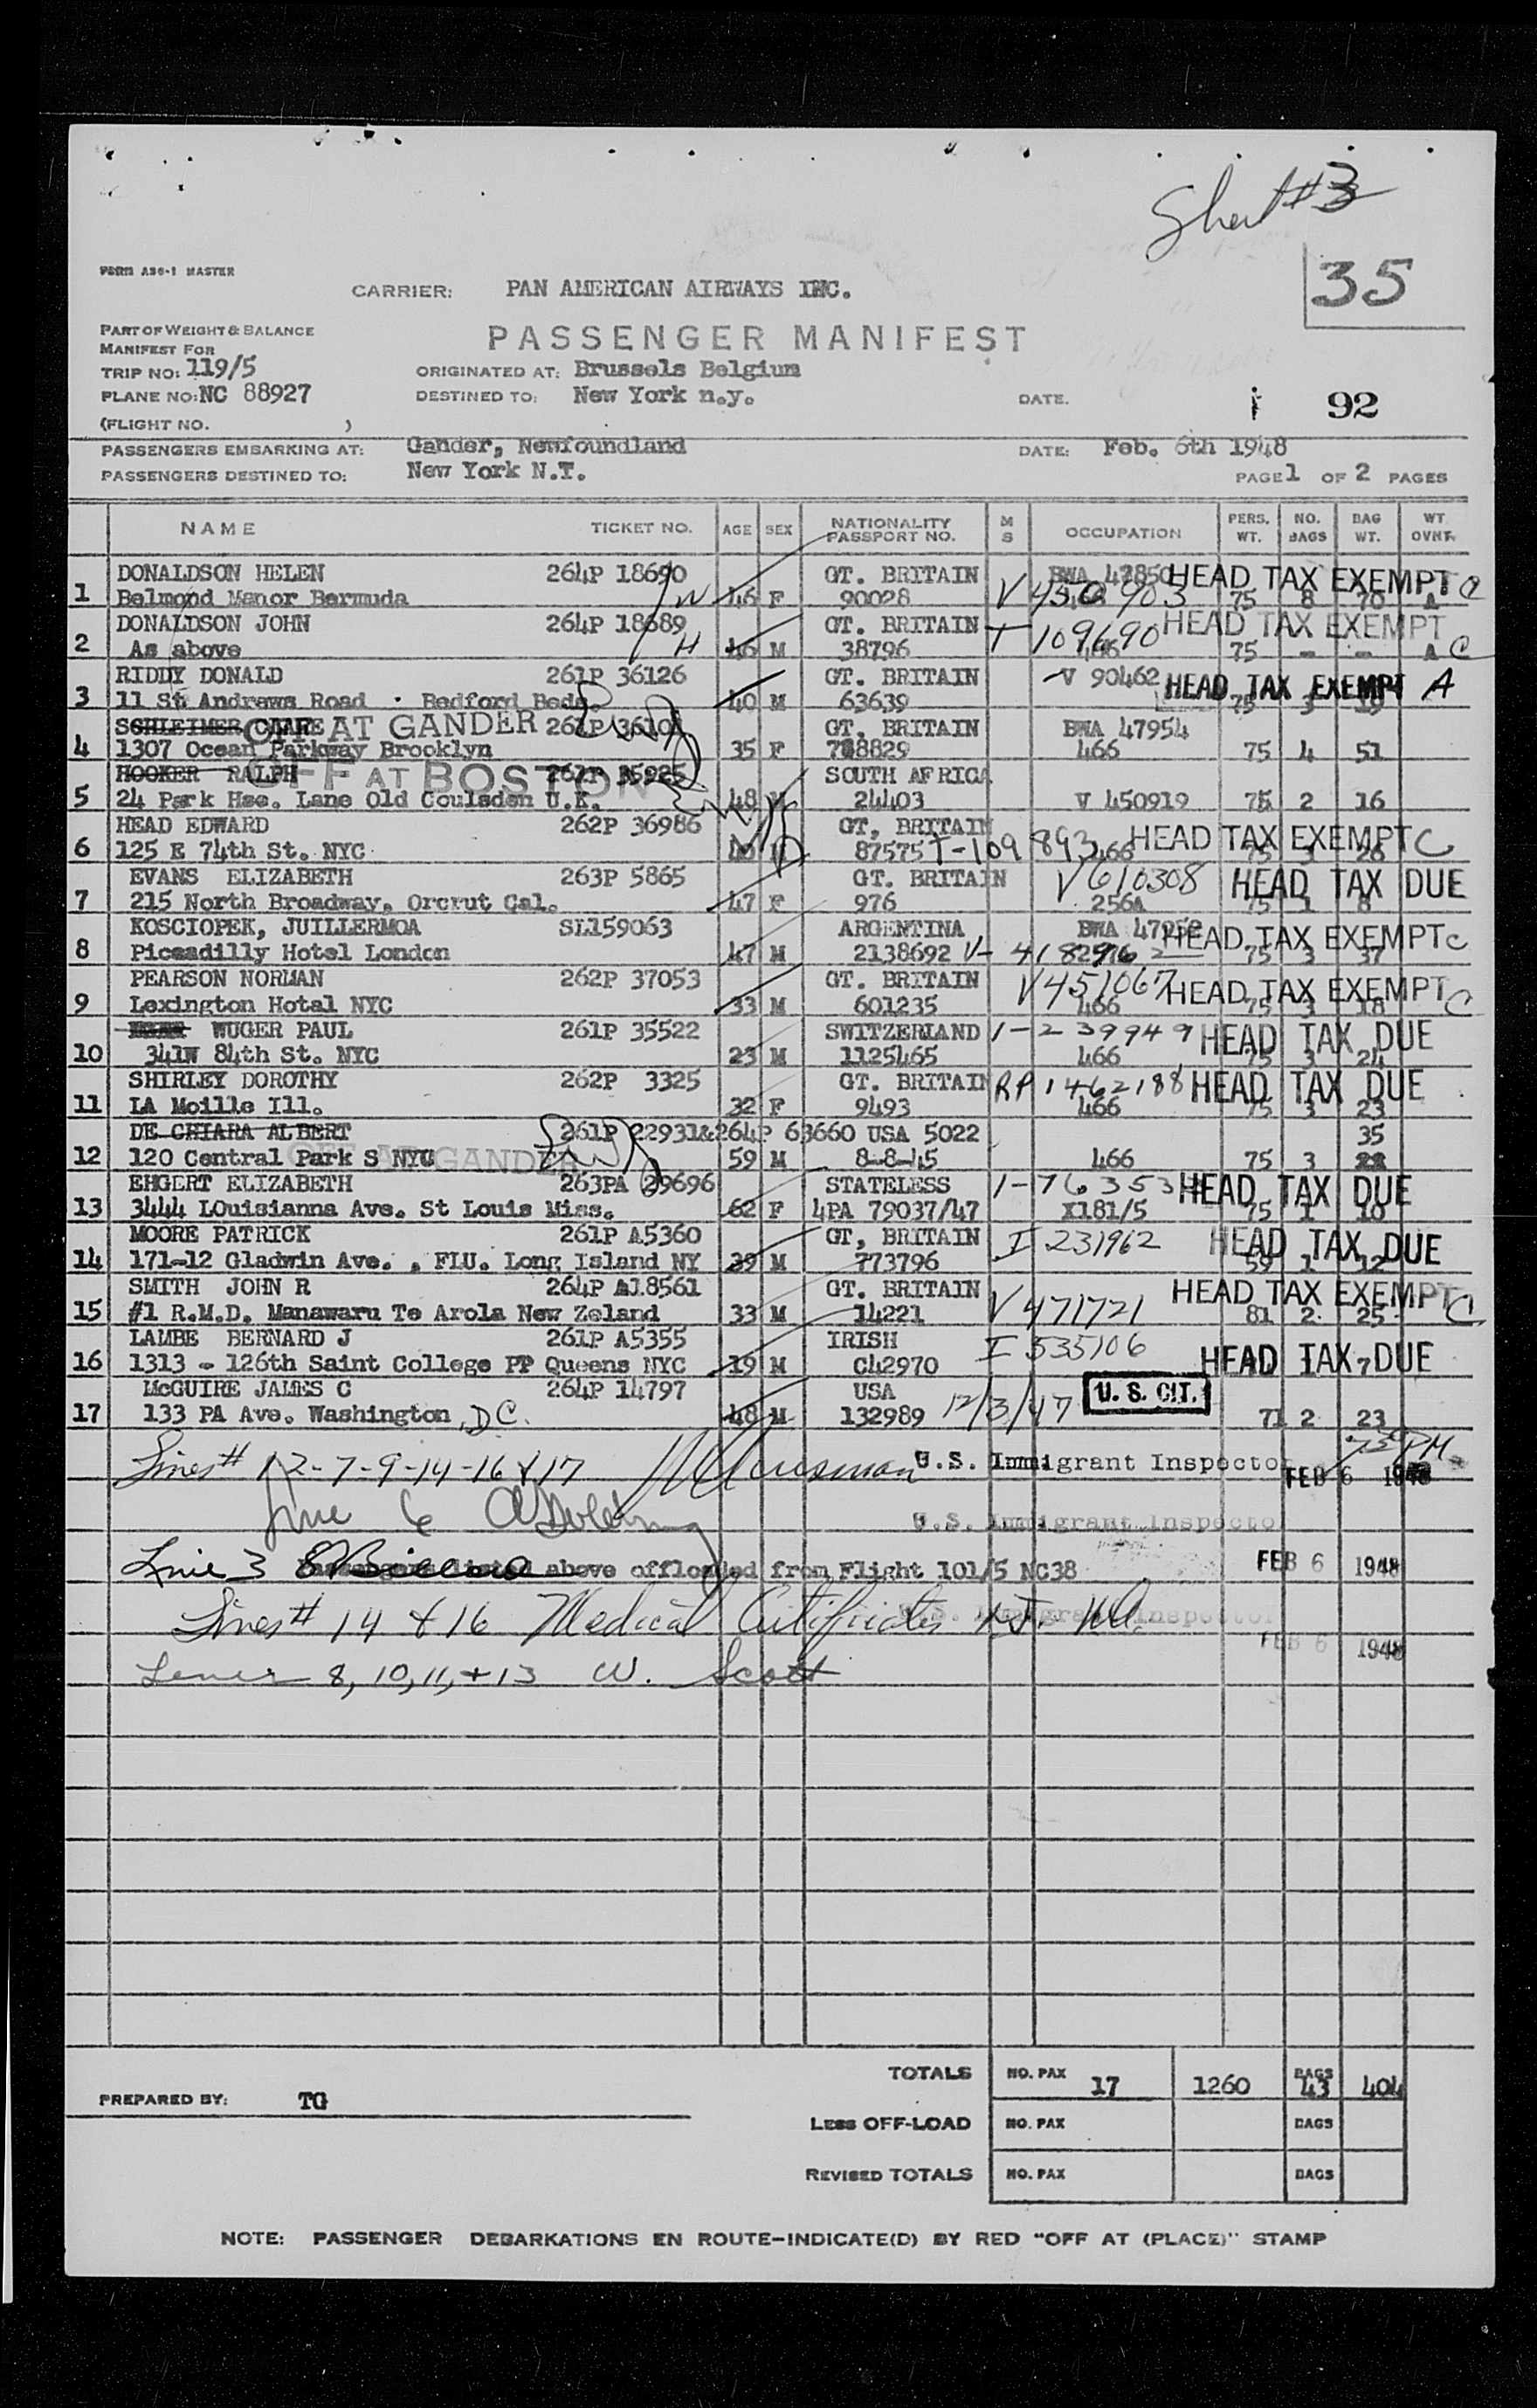 Sheet #3
35
FORM A36-1 MASTER
CARRIER: PAN AMERICAN AIRWAYS INC.
PART OF WEIGHT & BALANCE
MANIFEST FOR
PASSENGER MANIFEST
TRIP NO: 119/5 ORIGINATED AT: Brussels Belgium
PLANE NO: NC 88927 DESTINED TO: New York n.y. DATE. 92
(FLIGHT NO. )
PASSENGERS EMBARKING AT: Gander, Newfoundland DATE: Feb. 6th 1948
PASSENGERS DESTINED TO: New York N.Y. PAGE 1 OF 2 PAGES
NAME TICKET NO. AGE SEX NATIONALITY PASSPORT NO. M S OCCUPATION PERS. WT. NO. BAGS BAG WT. WT OVNT.
DONALDSON HELEN 264P 18690 GT. BRITAIN BWA 47850 HEAD TAX EXEMPT C
1 Belmond Manor Bermuda W 46 F 90028 V 450903 75 8 70 A
DONALDSON JOHN 264P 18689 GT. BRITAIN T 109690 HEAD TAX EXEMPT
2 As above H 46 M 38796 466 75 - - A C
RIDDY DONALD 261P 36126 GT. BRITAIN V 90462 HEAD TAX EXEMPT A
3 11 St Andrews Road Bedford Beds. 40 M 63639 75 3 19
SCHLEIMER CLARE OFF AT GANDER 261P GT. BRITAIN BWA 47954
4 1307 Ocean Parkway Brooklyn 35 F 788829 466 75 4 51
HOOKER RALPH OFF AT BOSTON 261P 35925 SOUTH AFRICA
5 24 Park Hse. Lane Old Coulsden U.K. 48 M 24403 V 450919 75 2 16
HEAD EDWARD 262P 36986 GT, BRITAIN HEAD TAX EXEMPT C
6 125 E 74th St. NYC 87575 T-109893 466 75 3 26
EVANS ELIZABETH 263P 5865 GT. BRITAIN V 610308 HEAD TAX DUE
7 215 North Broadway, Orcrut Cal. 47 F 976 256A 75 1 8
KOSCIOPEK, JUILLERMOA SL159063 ARGENTINA BWA HEAD TAX EXEMPT C
8 Piccadilly Hotel London 47 M 2138692 75 3 37
PEARSON NORMAN 262P 37053 GT. BRITAIN V451067 HEAD TAX EXEMPT C
9 Lexington Hotal NYC 33 M 601235 466 75 3 18
WUGER PAUL 261P 35522 SWITZERLAND 1-239949 HEAD TAX DUE
10 341W 84th St. NYC 23 M 1125465 466 75 3 24
SHIRLEY DOROTHY 262P 3325 GT. BRITAIN RP 1462188 HEAD TAX DUE
11 LA Moille Ill. 32 F 9493 466 75 3 23
DE CHIARA ALBERT 261P 22931&264P 63660 USA 5022 35
12 120 Central Park S NYC OFF AT GANDER 59 M 8-8-45 466 75 3
EHGERT ELIZABETH 263PA 29696 STATELESS 1-76353 HEAD TAX DUE
13 3444 LOuisianna Ave. St Louis Miss. 62 F 4PA 79037/47 X181/5 75 1 10
MOORE PATRICK 261P A5360 GT, BRITAIN I 231962 HEAD TAX DUE
14 171-12 Gladwin Ave. , FLU. Long Island NY 39 M 773796 59 1 12
SMITH JOHN R 264P A18561 GT. BRITAIN V 471721 HEAD TAX EXEMPT
15 #1 R.M.D. Manawaru Te Arola New Zeland 33 M 14221 81 2 25 C
LAMBE BERNARD J 261P A5355 IRISH I 535106
16 1313 - 126th Saint College PP Queens NYC 19 M C42970 HEAD TAX DUE
McGUIRE JAMES C 264P 14797 USA U. S. CIT.
17 133 PA Ave. Washington, DC. 48 M 132989 12/3/47 71 2 23
Lines # 1 2-7-9-14-16 & 17 U.S. Immigrant Inspector FEB 6 1948
Line 6 U.S. Immigrant Inspector
Line 3 Passengers listed above offloaded from Flight 101/5 NC38 FEB 6 1948
Lines # 14 & 16 Medical Certificates U.S. Immigrant Inspector
FEB 6 1948
Lines 8, 10, 11, + 13 W. Scott
TOTALS NO. PAX 17 1260 BAGS 43 404
PREPARED BY: TG
LESS OFF-LOAD NO. PAX BAGS
REVISED TOTALS NO. PAX BAGS
NOTE: PASSENGER DEBARKATIONS EN ROUTE-INDICATE(D) BY RED "OFF AT (PLACE)" STAMP